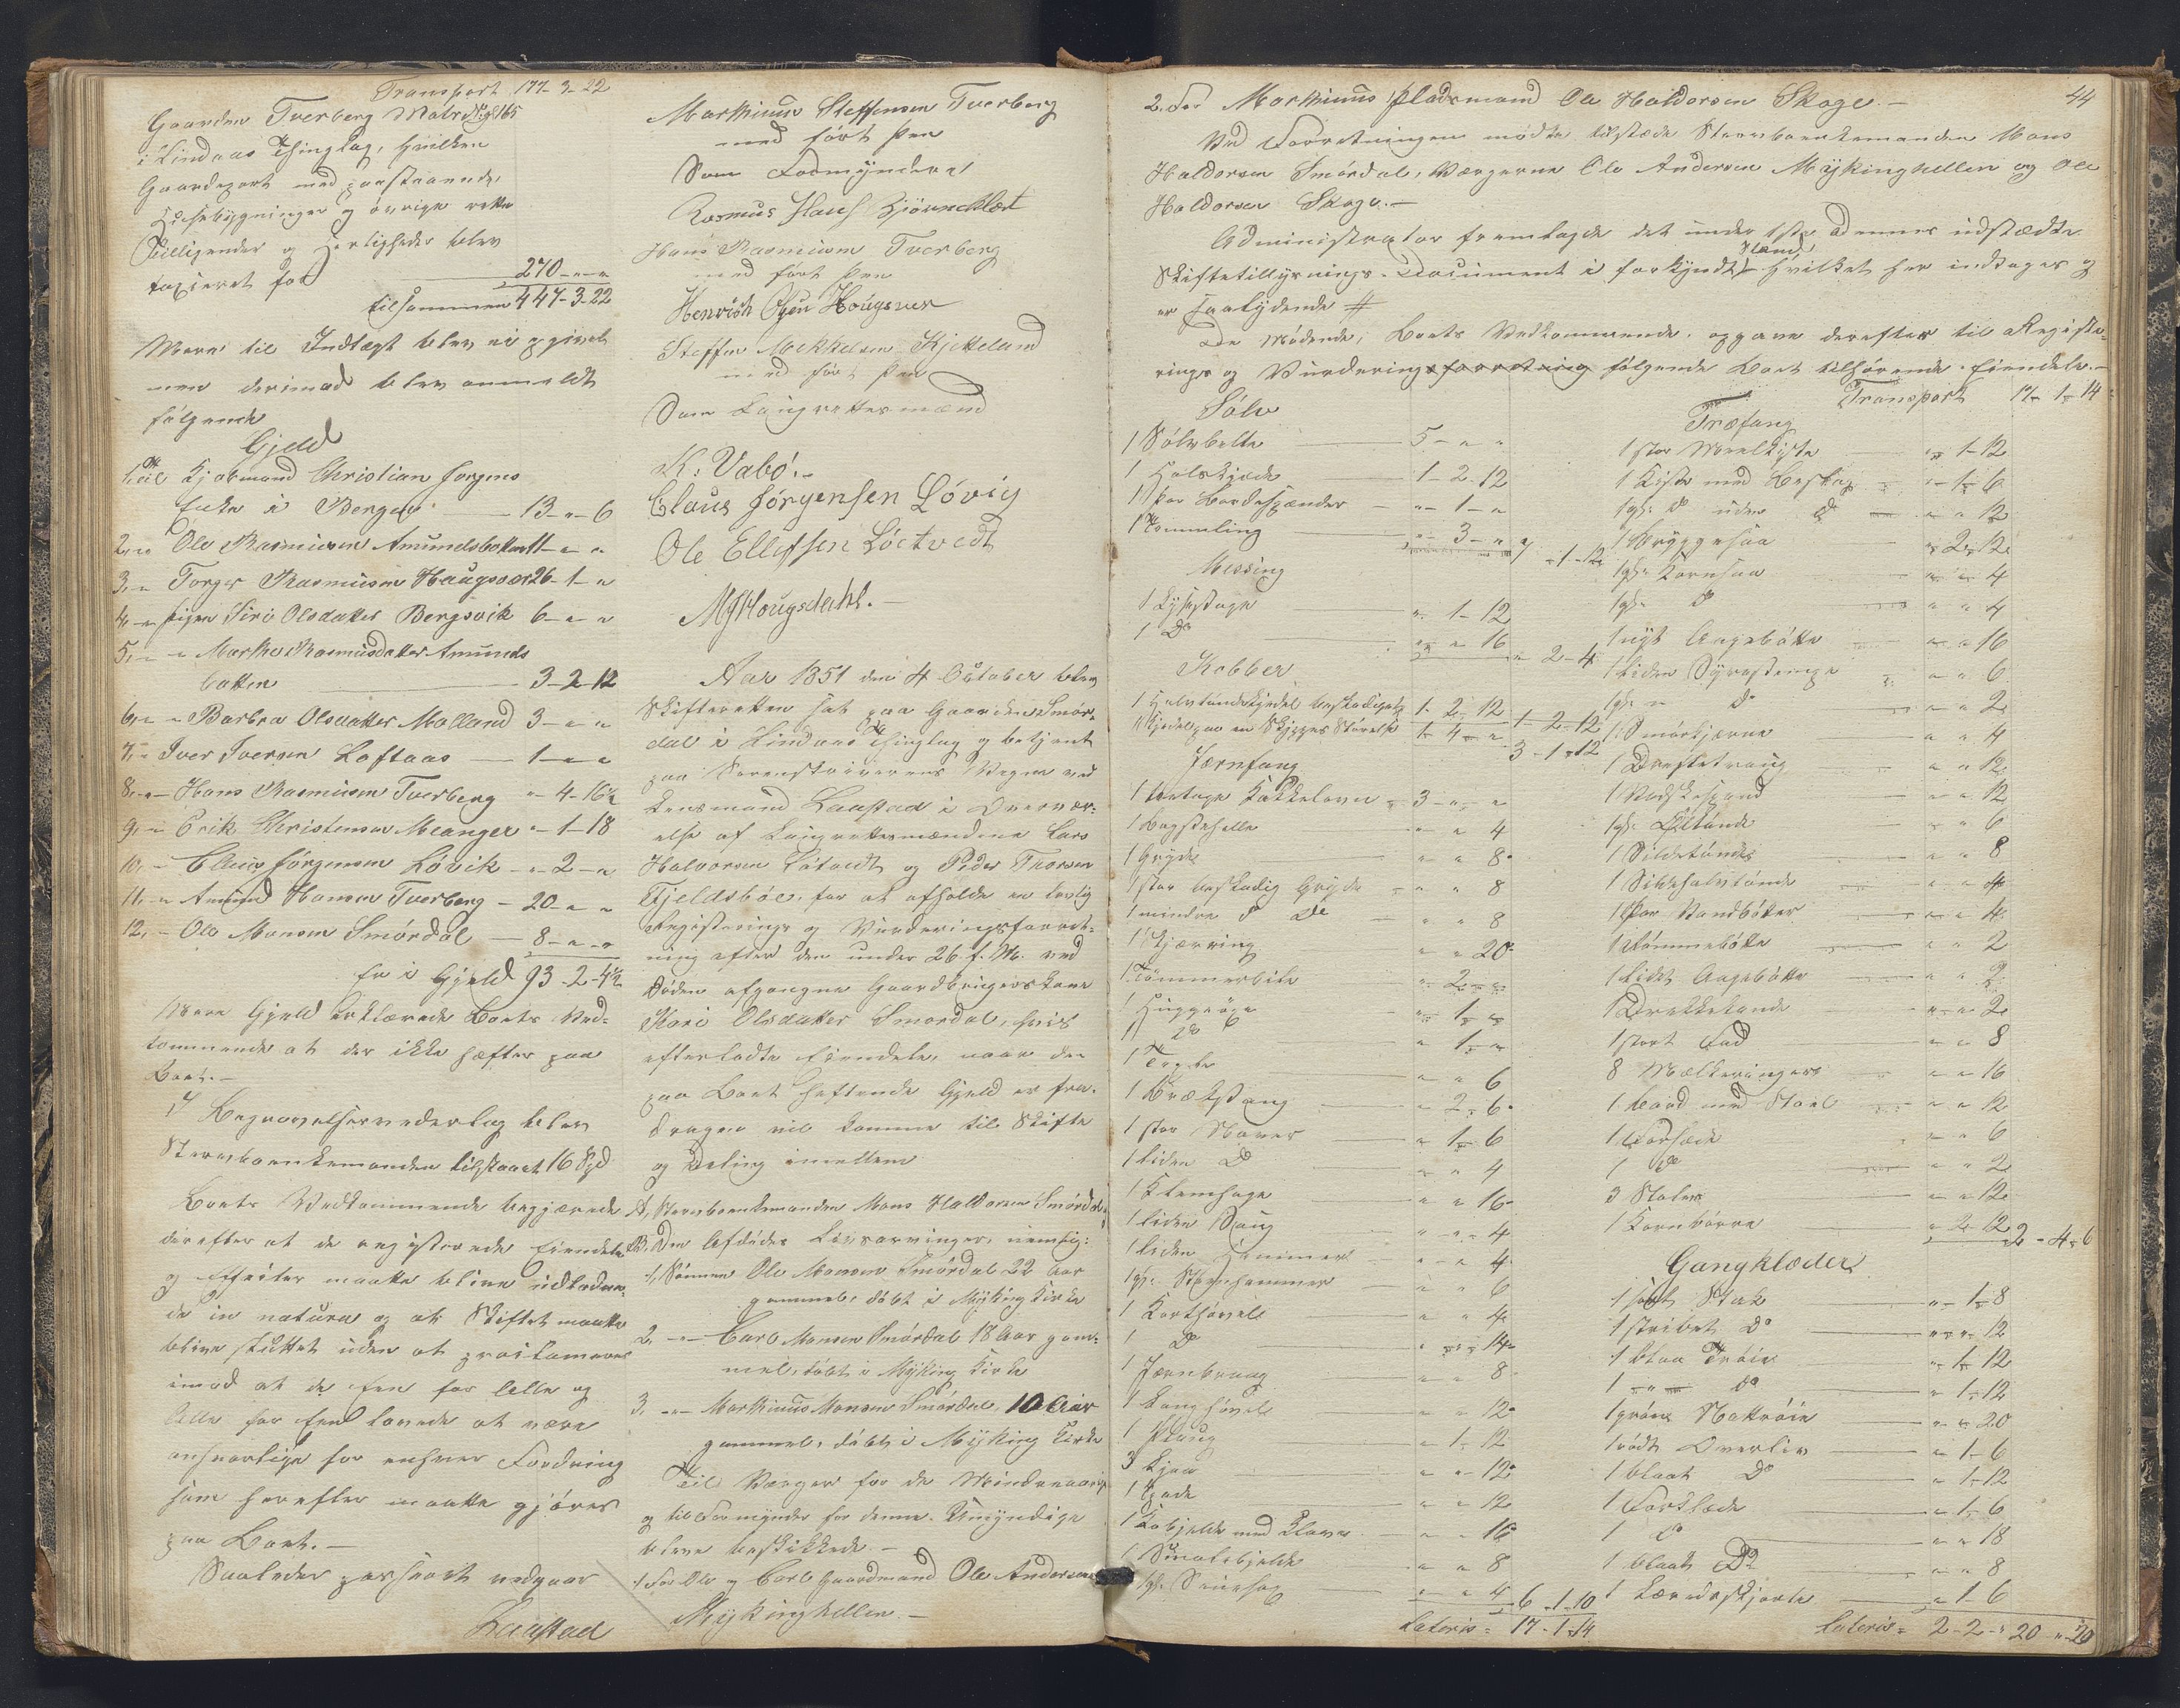 Transport 177-3-22
Gaarden Tverberg Matr No 165
i Lindaas Thinglag, hvilken
Gaardepart med paastaaende
Huusebygninger og øvrige rette
Tilliggender og Herligheder blev
taxeret for 270-"-"
tilsammen 447-3-22
Mere til Indtægt blev ei opgivet
men derimod blev anmeldt
følgende
Gjeld
1, til Kjøbmand Christian Jorgens
i Bergen 13-"-6
2, " Ole Rasmusen Amundsbotten 11-"-"
3, " Torger Rasmusen Haugsvær 26-1-"
4, " Pigen Siri Olsdatter Bergsvik 6-"-"
5, " " Marthe Rasmusdatter Amunds
botten 3-2-12
6, " " Barbra Olsdatter Molland 3-"-"
7, " Iver Iversen Loftaas 1-"-"
8, " Hans Rasmusen Tverberg "-4-16½
9, " Erik Christensen Meanger "-1-18
10, " Claus Jørgensen Løvik "-2-"
11, " Amund Hansen Tverberg 20-"-"
12, " Ole Monsen Smørdal 8-"-"
Er i Gjeld 93-2-4½
Mere Gjeld erklærede Boets Ved-
kommende at der ikke hæfter paa
Boet.-
I Begravelsesvederlag blev
Stervboenkemanden tilstaaet 16 Spd
Boets Vedkommende begjærede
derefter at de registerede Eiendele
og Effecter maatte blive udlodde-
de in natura og at Skiftet maatte
blive sluttet uden at proclameres
imod at de Een for Alle og
Alle for Een lovede at være
ansvarlige for enhver Fordring
som herefter maatte gjøres
paa Boet.-
Saaledes passeret vedgaar
Laastad
Marthinus Steffensen Tverberg
med ført Pen
Som Formyndere
Rasmus Hans
Hans Rasmusen Tverberg
med ført Pen
Henrich Olsen Hougsvær
Steffen Mikkelsen Kjekeland
med ført Pen
Som Laugrettesmænd
K: Vabø.
Claus Jørgensen Løvig
Ole Ellefsen Løtvedt
M Hougsdahl.-
Aar 1851 den 4 October blev
Skifteretten sat paa Gaarden Smør-
dal i Lindaas Thinglag og betjent
paa Sorenskriverens Vegne ved
Lensmand Laastad i Overvær-
else af Laugrettesmændene Lars
Halvorsen Løtvedt og Peder Thorsen
Fjeldsbøe, for at afholde en lovlig
Registerings og Vurderingsforret-
ning efter den under 26 f. M. ved
Døden afgangne Gaardbrugerskone
Kari Olsdatter Smørdal, hvis
efterladte Eiendele, naar den
paa Boet heftende Gjeld er fra-
dragen vil komme til Skifte
og Deling imellem
A, Stervboenkemanden Mons Haldorsen Smørdal
B, Den Afdødes Livsarvinger, nemlig:
1, Sønnen Ole Monsen Smørdal 22 Aar
gammel, døbt i Myking Kirke
2, " Carl Monsen Smørdal 18 Aar gam-
mel, døbt i Myking Kirke
3, " Marthinus Monsen Smørdal, 10 Aar
gammel, døbt i Myking Kirke
Til Værger for de Mindreaarige
og til Formynder for denne Umyndige
bleve beskikkede.-
1, For Ole og Carl Gaardmand Ole Andersen
Mykinghellen.-
44
2. For Marthinus Pladsmand Ole Haldorsen Skoge.-
Ved Forretningen mødte tilstæde Stervboenkemanden Mons
Haldorsen Smørdal, Værgerne Ole Andersen Mykinghellen og Ole
Haldorsen Skoge.-
Administrator fremlagde det under 1ste Dennes udstædte
Skiftetillysnings-Document i forkyndt Stand
hvilket her indtages og
er saalydende #
De Mødende, Boets Vedkommende, opgave derefter til Registe-
rings og Vurderingsforretning følgende Boet tilhørende Eiendele.-
Sølv
1 Sølvbelte 5-"-"
1 Halskjæde 1-2-12
1 Par Bordespænder "-1-"
1 Tomling "-3-" 7-1-12
Messing
1 Lysestage "-1-12
1 Do "-"-16 "-2-4
Kobber
1 Halvtøndekjedel beskadiget 1-2-12 1-2-12
1 Kjedel paa en Skjeppes Størrelse 1-4-" 3-1-12
Jernfang
1 toetages Kakkelovn 3-"-"
1 Bagstehelle "-"-4
1 Gryde "-"-8
1 stor beskadig Gryde "-"-8
1 mindre do Do "-"-8
1 Skjæring "-"-20
1 Tømmerbile "-2-"
1 Huggeøxe "-1-"
1 Do "-1-"
1 "-"-6
1 Brækstang "-2-6
1 stor Naver "-1-6
1 liden Do "-"-4
1 Klemhage "-"-16
1 liden Saug "-"-4
1 liden Hammer "-"-4
1 gl. Steenhammer "-"-6
1 Korthøvel "-"-4
1 Do "-"-14
1 Jernbraag "-"-8
1 Langhøvel "-"-12
1 Plaug "-1-12
3 Ljaa "-"-12
1 Spade "-"-12
1 Kobjelde med Klave "-"-16
1 Smalebjelde "-"-8
1 gl. "-"-4 6-1-10
Lateris = 17-1-14
Transport 17-1-14
Træfang
1 stor Meelkiste "-1-12
1 Kiste med Beslag "-1-6
1 gl. do uden do "-"-12
1 Bryggesaa "-2-12
1 gl. Kornsaa "-"-4
1 gl. do "-"-4
1 nyt Angebøtte "-"-16
1 liden Syrestampe "-"-6
1 gl. " do "-"-2
1 Smørkjerne "-"-4
1 "-"-12
1 Vadskespand "-"-12
1 gl. Øltønde "-"-6
1 Sildetønde "-"-8
1 Sildehalvtønde "-"-4
1 Par Vandbøtter "-"-4
1 Rømmebøtte "-"-2
1 lidet Angebøtte "-"-2
1 Drikkekande "-"-2
1 stort Fad "-"-8
8 Mælkeringer "-"-16
1 Bord med Stoel "-"-12
1 "-"-6
1 do "-"-2
3 Stoler "-"-12
1 Kornbørre "-2-12 2-4-6
Gangklæder
1 sort Stak "-1-8
1 stribet Do "-"-12
1 blaa Trøie "-1-12
1 " do "-1-12
1 grøn Nattrøie "-"-20
1 rødt Overliv "-1-6
1 blaat Do "-1-12
1 Forklæde "-1-6
1 do "-"-18
1 blaat Do "-"-8
1 Lærredsskjorte "-1-6
Lateris = 2-2-20 "-"-20